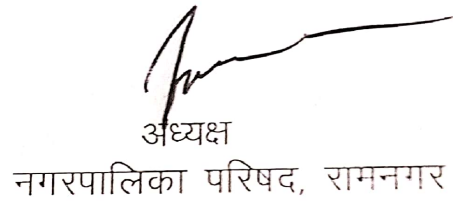 अध्यक्ष
नगरपालिका परिषद, रामनगर